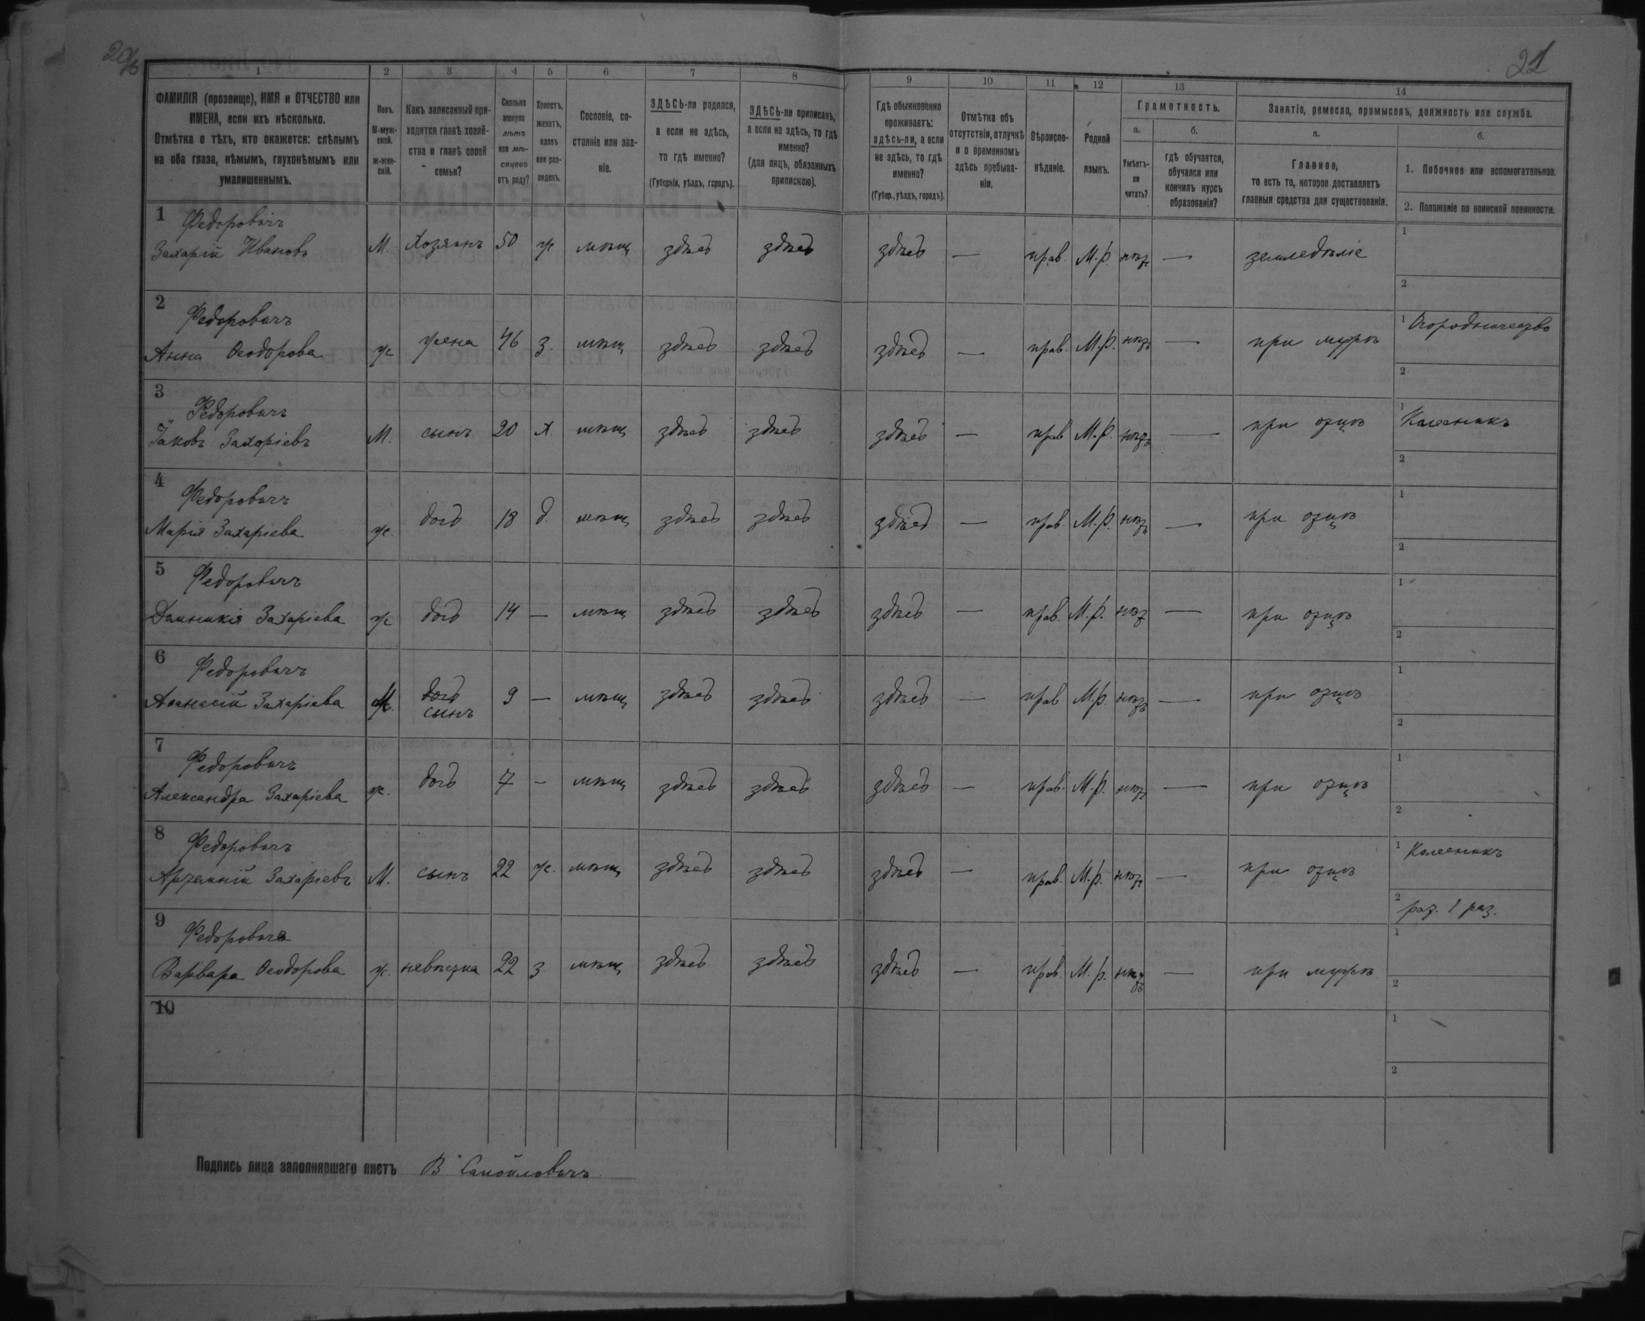 20/б
21
1 2 3 4 5 6 7 8 9 10 11 12 13 14
ФАМИЛІЯ (прозвище), ИМЯ и ОТЧЕСТВО или
ИМЕНА, если ихъ нѣсколько.
Отмѣтка о тѣхъ, кто окажется: слѣпымъ
на оба глаза, нѣмымъ, глухонѣмымъ или
умалишеннымъ.
Полъ.
М-муж-
ской.
ж-жен-
скій.
Какъ записанный при-
ходится главѣ хозяй-
ства и главѣ своей
семьи?
Сколько
минуло
лѣтъ
или мѣ-
сяцевъ
отъ роду?
Холостъ,
женатъ,
вдовъ
или раз-
веденъ.
Сословіе, со-
стояніе или зва-
ніе.
ЗДѢСЬ-ли родился,
а если не здѣсь,
то гдѣ именно?
(Губернія, уѣздъ, городъ).
ЗДѢСЬ-ли приписанъ,
а если не здѣсь, то гдѣ
именно?
(для лицъ, обязанныхъ
припискою).
Гдѣ обыкновенно
проживаетъ:
здѣсь-ли, а если
не здѣсь, то гдѣ
именно?
(Губер., уѣздъ, городъ).
Отмѣтка объ
отсутствіи, отлучкѣ
и о временномъ
здѣсь пребыва-
ніи.
Вѣроиспо-
вѣданіе.
Родной
языкъ.
Грамотность.
а.
Умѣетъ-
ли
читать?
б.
гдѣ обучается,
обучался или
кончилъ курсъ
образованія?
Занятіе, ремесло, промыселъ, должность или служба.
а.
Главное,
то есть то, которое доставляетъ
главныя средства для существованія.
б.
1. Побочное или вспомогательное.
2. Положеніе по воинской повинности.
1 Федоровичъ
Захарій Ивановъ М. Хозяинъ 50 ж мѣщ здѣсь здѣсь здѣсь — прав. М.р. нѣтъ — земледѣліе 1
2
2 Федоровичъ
Анна Ѳеодорова ж жена 46 з. мѣщ здѣсь здѣсь здѣсь — прав. М.р. нѣтъ — при мужѣ 1 Огородничество
2
3 Федоровичъ
Іаковъ Захаріевъ М. сынъ 20 х мѣщ здѣсь здѣсь здѣсь — прав М.р. нѣтъ — при отцѣ 1 Колесникъ
2
4 Федоровичъ
Марія Захаріева ж. дочь 18 д. мѣщ здѣсь здѣсь здѣсь — прав. М.р. нѣтъ — при отцѣ 1
2
5 Федоровичъ
Домникія Захаріева ж дочь 14 — мѣщ здѣсь здѣсь здѣсь — прав. М.р. нѣтъ — при отцѣ 1
2
6 Федоровичъ
Аѳанасій Захаріева М. дочь 9 — мѣщ здѣсь здѣсь здѣсь — прав М.р. нѣтъ — при отцѣ 1
сынъ
2
7 Федоровичъ
Александра Захаріева ж. дочь 7 — мѣщ здѣсь здѣсь здѣсь — прав. М.р. нѣтъ — при отцѣ 1
2
8 Федоровичъ
Артемій Захаріевъ М. сынъ 22 ж. мѣщ здѣсь здѣсь здѣсь — прав. М.р. нѣтъ — при отцѣ 1 Колесникъ
2 рат. 1 раз.
9 Федоровичъ
Варвара Ѳеодорова ж. невѣстка 22 з мѣщ здѣсь здѣсь здѣсь — прав. М.р. нѣтъ — при мужѣ 1
2
10 1
2
Подпись лица заполнявшаго листъ В Самойловичъ